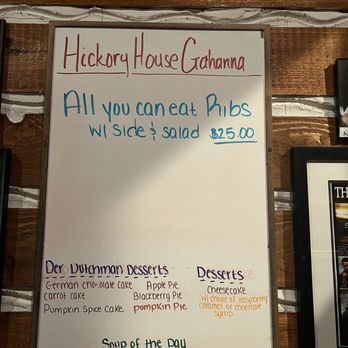 Hickory House Gahanna
All you can eat Ribs
W/ Side & Salad $25.00
Der Dutchman Desserts
German chocolate cake
Apple Pie
carrot cake
Blackberry Pie
Pumpkin Spice Cake
pumpkin Pie
Desserts
Cheesecake
w/ choice of raspberry
caramel or chocolate
syrup
Soup of the Day
TH